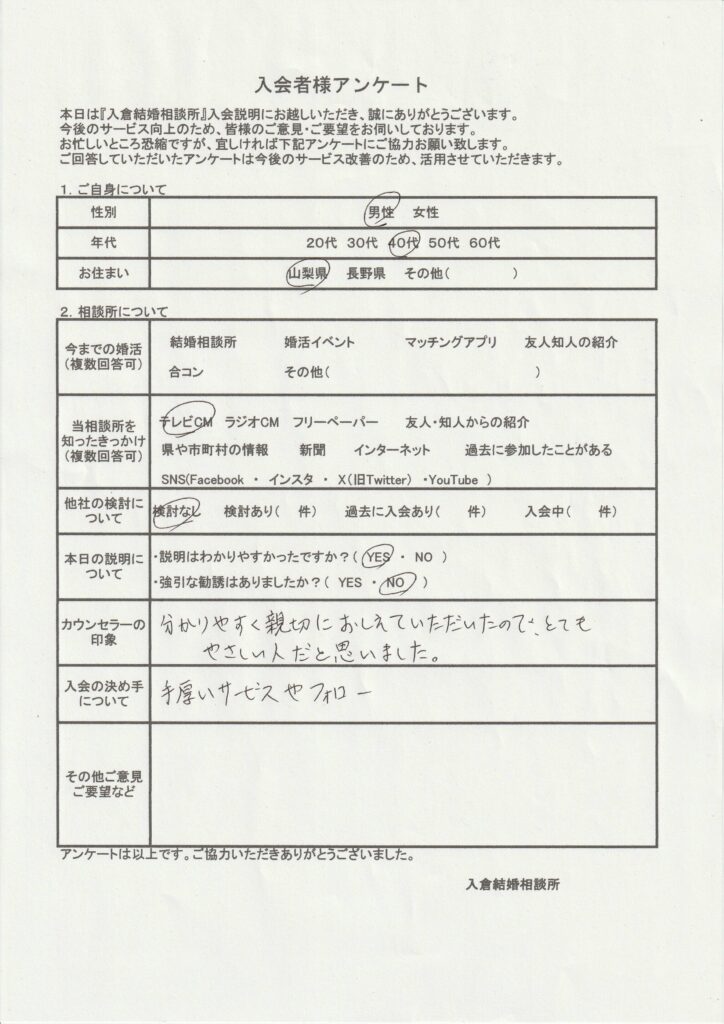 入会者様アンケート
本日は『入倉結婚相談所』入会説明にお越しいただき、誠にありがとうございます。
今後のサービス向上のため、皆様のご意見・ご要望をお伺いしております。
お忙しいところ恐縮ですが、宜しければ下記アンケートにご協力お願い致します。
ご回答していただいたアンケートは今後のサービス改善のため、活用させていただきます。
1. ご自身について
性別 男性 女性
年代 20代 30代 40代 50代 60代
お住まい 山梨県 長野県 その他( )
2. 相談所について
今までの婚活
(複数回答可)
結婚相談所 婚活イベント マッチングアプリ 友人知人の紹介
合コン その他( )
当相談所を
知ったきっかけ
(複数回答可)
テレビCM ラジオCM フリーペーパー 友人・知人からの紹介
県や市町村の情報 新聞 インターネット 過去に参加したことがある
SNS(Facebook ・ インスタ ・ X(旧Twitter) ・YouTube )
他社の検討に
ついて
検討なし 検討あり( 件) 過去に入会あり( 件) 入会中( 件)
本日の説明に
ついて
・説明はわかりやすかったですか?( YES ・ NO )
・強引な勧誘はありましたか?( YES ・ NO )
カウンセラーの
印象
分かりやすく親切におしえていただいたので、とても
やさしい人だと思いました。
入会の決め手
について
手厚いサービスやフォロー
その他ご意見
ご要望など
アンケートは以上です。ご協力いただきありがとうございました。
入倉結婚相談所